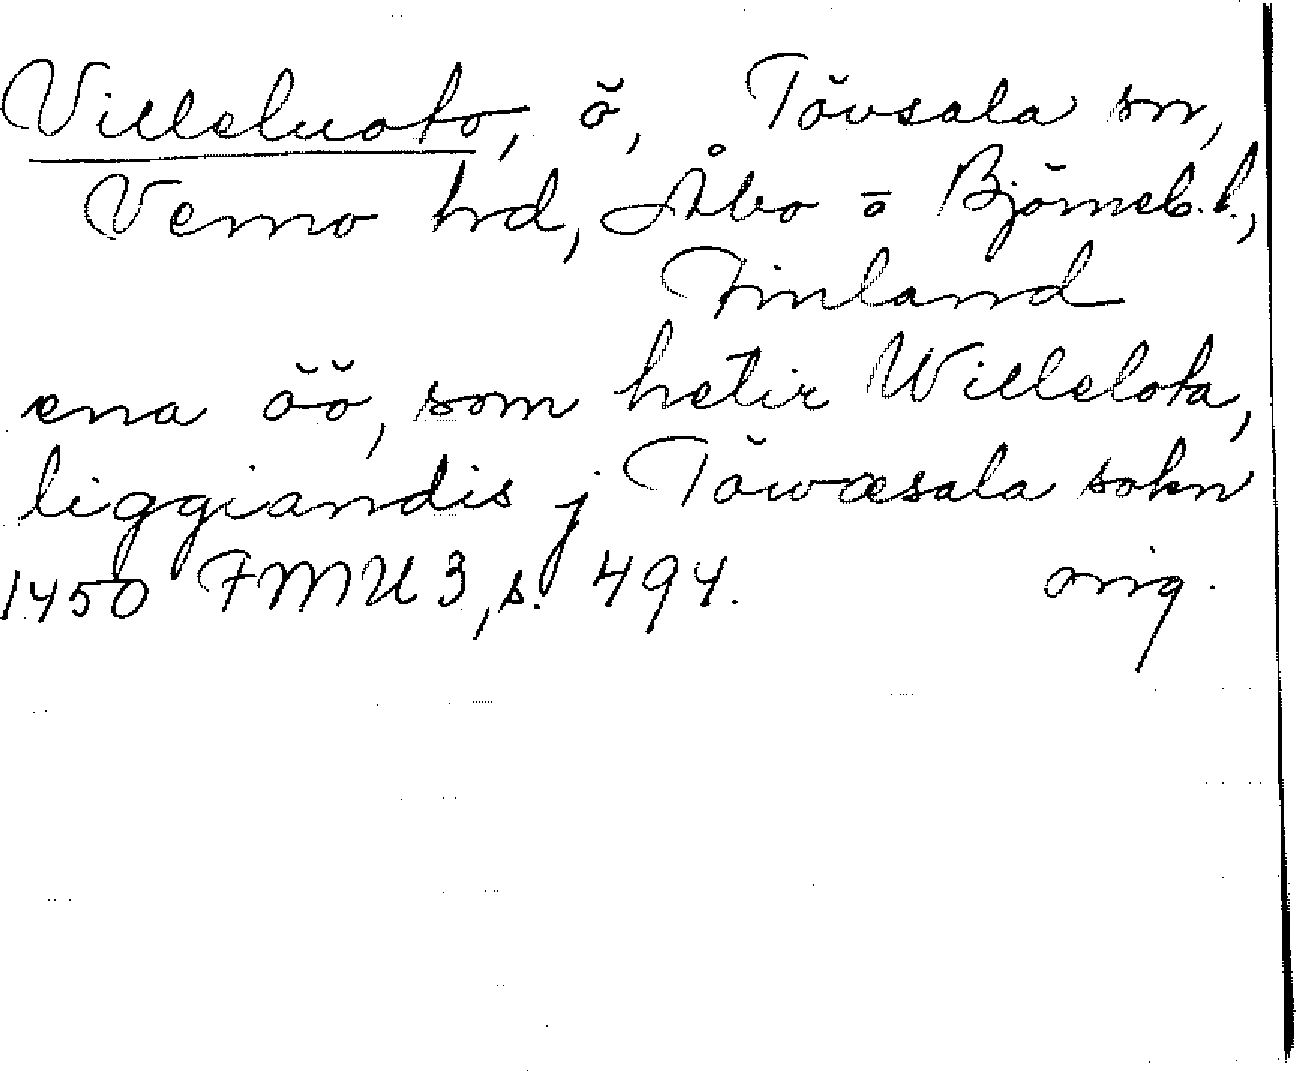 Villeluoto, ö, Tövsala sn,
Vemo hd, Åbo o Björneb. l.,
Finland
ena öö, som hetir Willelota,
liggiandis j Töwæsala sokn
1450 FMU 3, s. 494. orig.